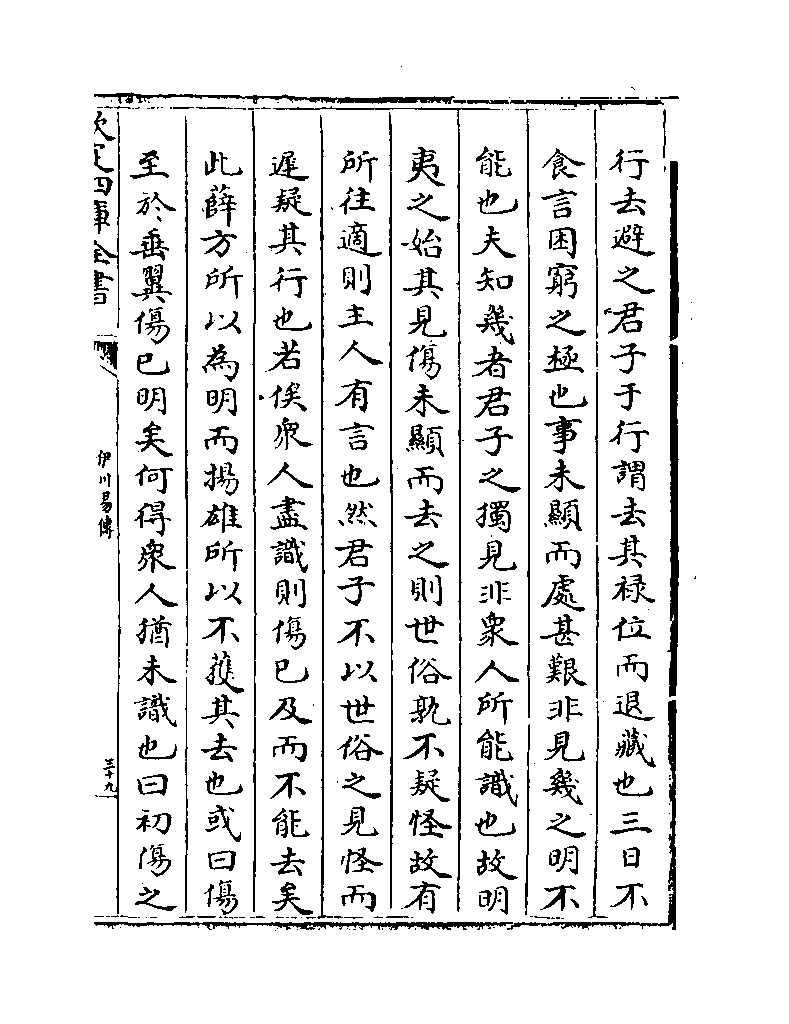 行去避之君子于行謂去其禄位而退藏也三日不
食言困窮之極也事未顯而處甚艱非見幾之明不
能也夫知幾者君子之獨見非衆人所能識也故明
夷之始其見傷未顯而去之則世俗孰不疑怪故有
所往適則主人有言也然君子不以世俗之見怪而
遲疑其行也若俟衆人盡識則傷已及而不能去矣
此薛方所以為明而揚雄所以不獲其去也或曰傷
至於垂翼傷已明矣何得衆人猶未識也曰初傷之
欽定四庫全書
伊川易傳
三十九